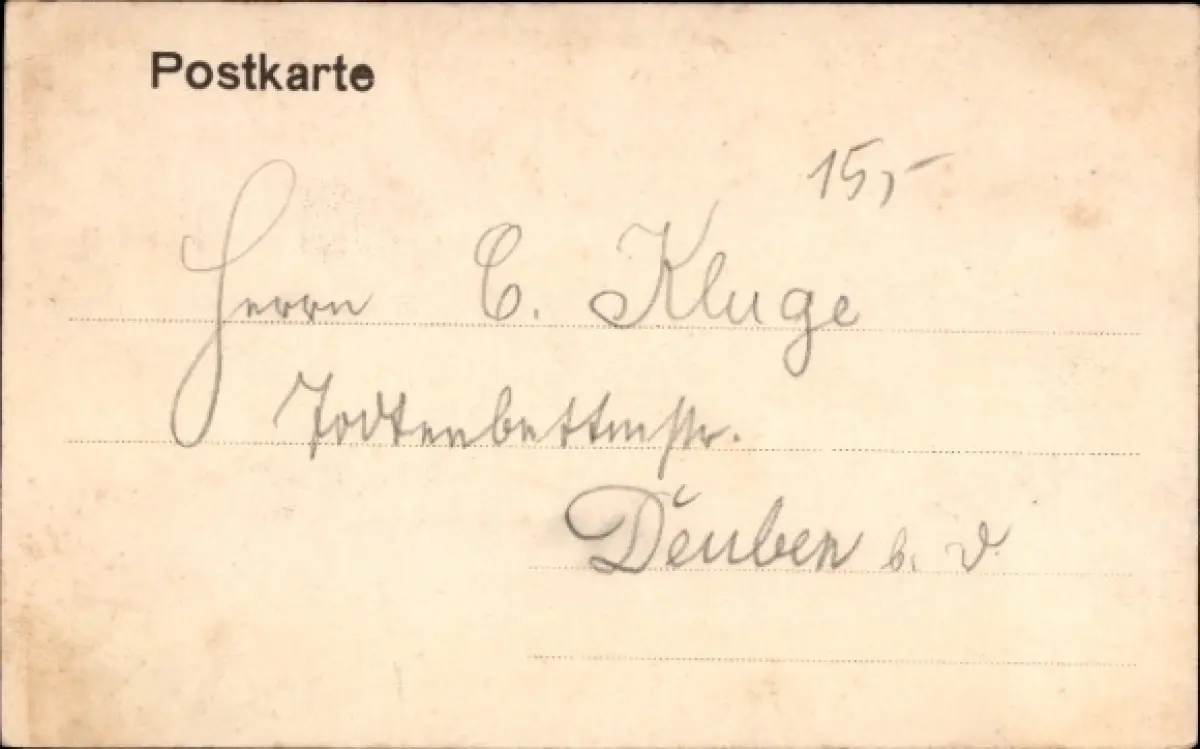 Postkarte
15,-
Herrn C. Kluge
Deuben b. D.